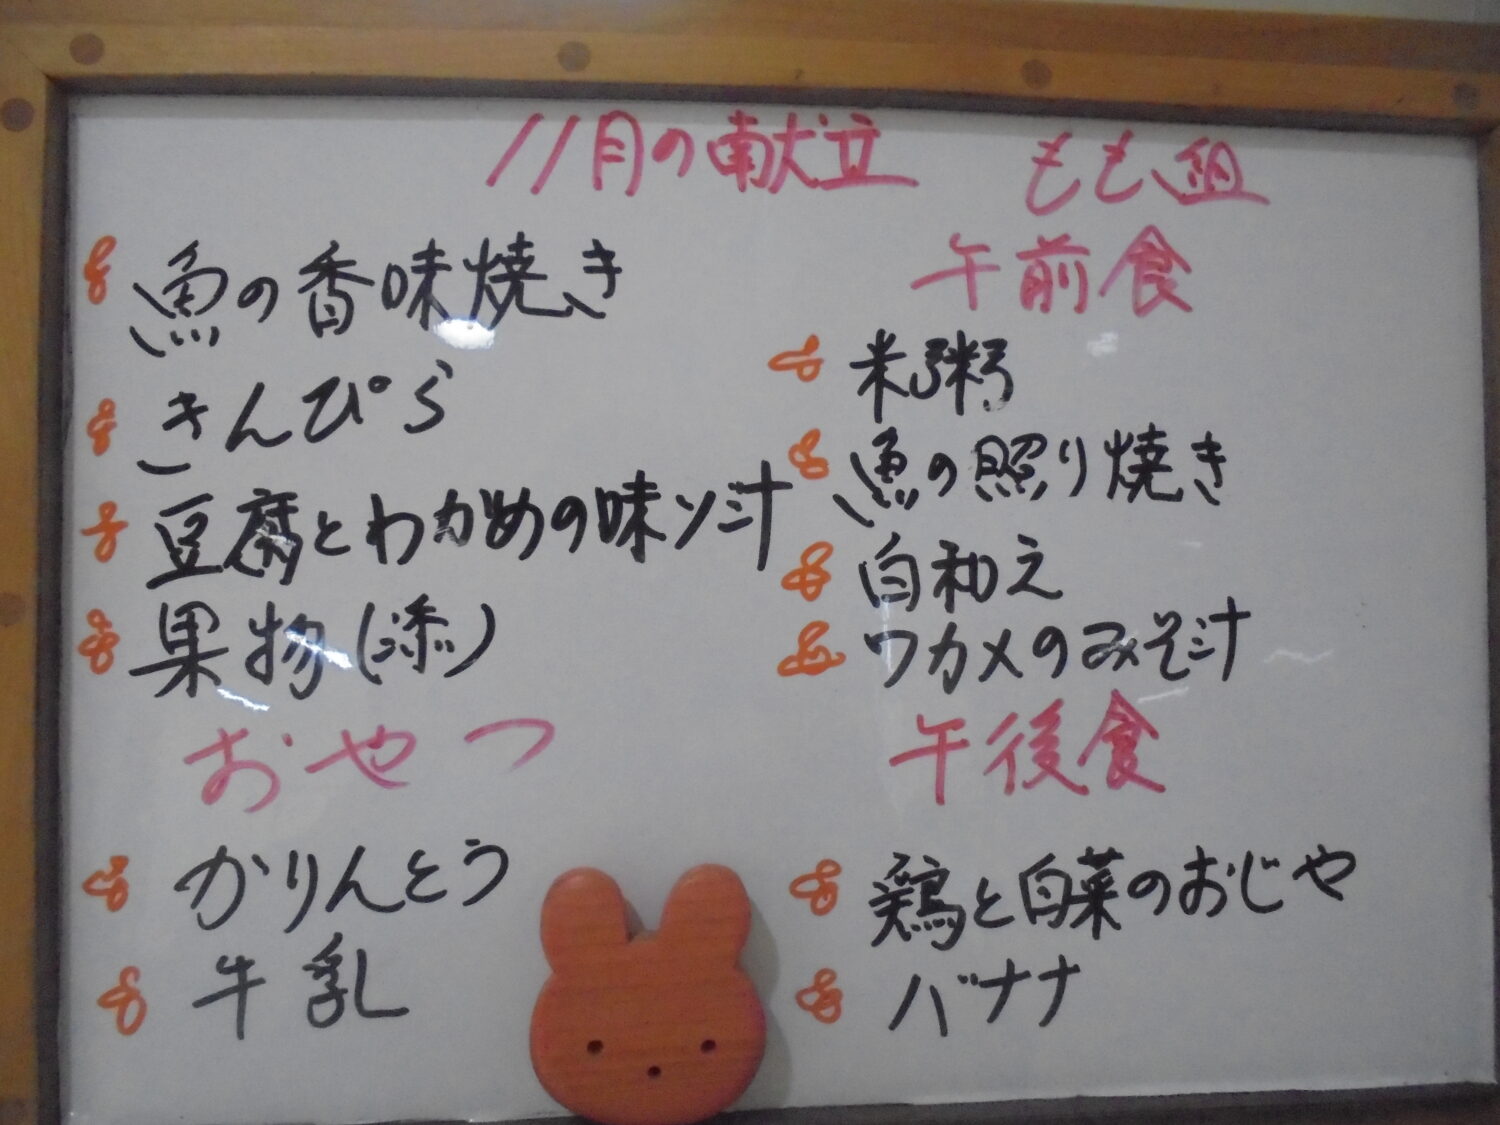 11月の献立
魚の香味焼き
きんぴら
豆腐とわかめの味ソ汁
果物(添)
おやつ
かりんとう
牛乳
もも組
午前食
米粥
魚の照り焼き
白和え
ワカメのみそ汁
午後食
鶏と白菜のおじや
バナナ